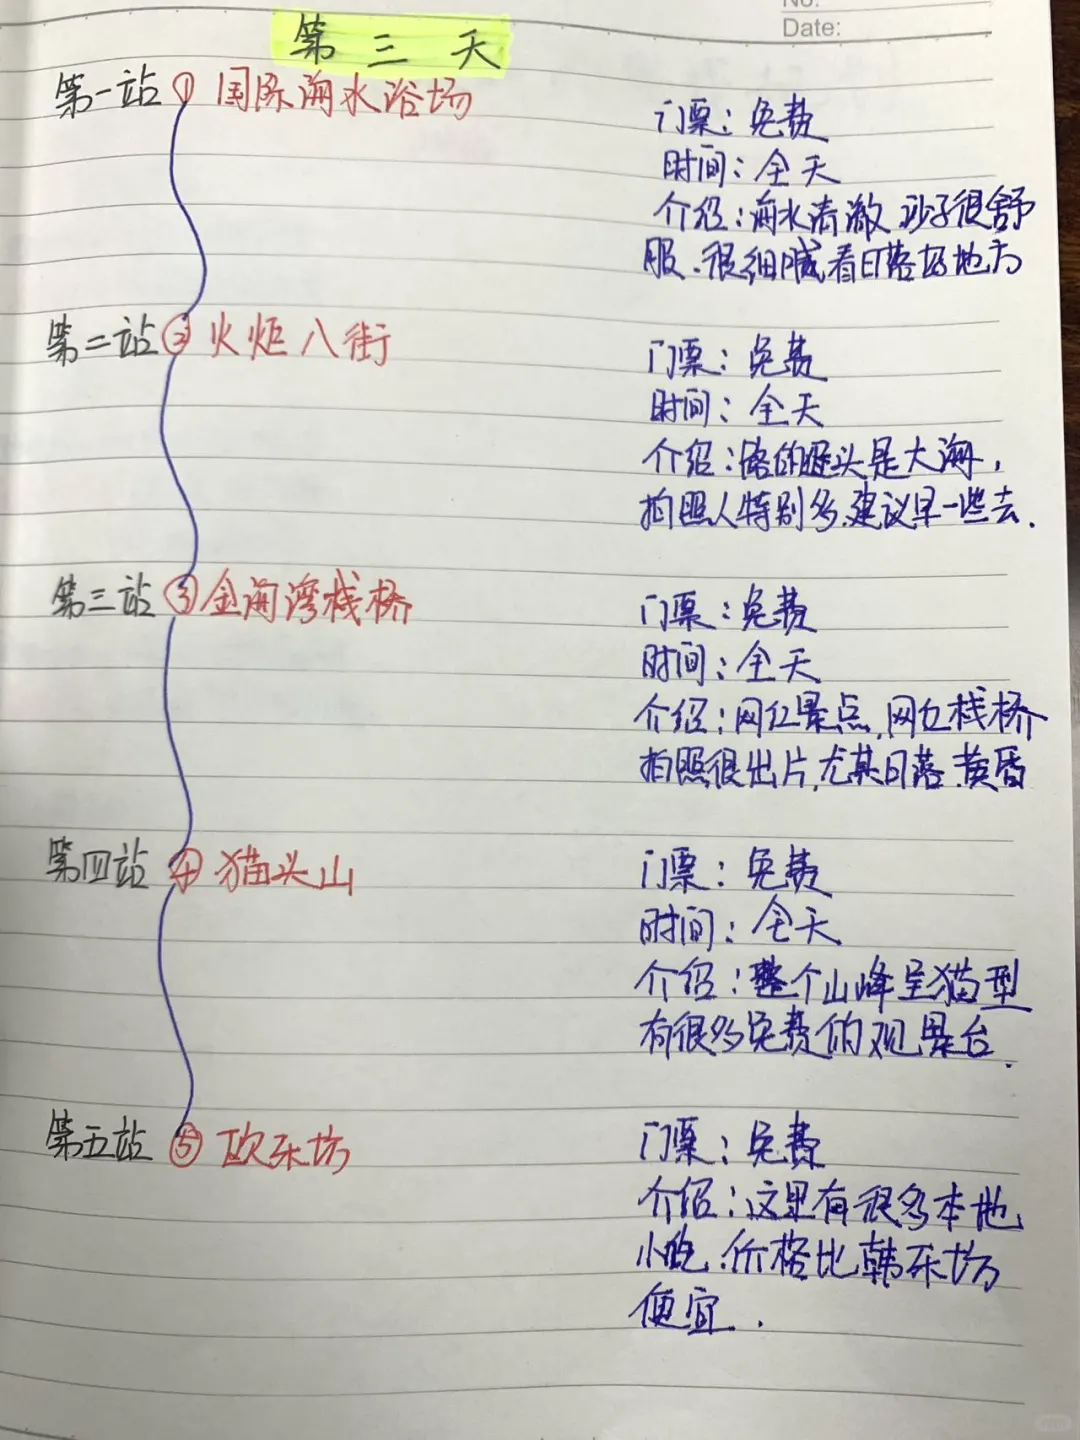 No:
Date:
第三天
第一站 ① 国际海水浴场
门票：免费
时间：全天
介绍：海水清澈 沙子很舒
服、很细腻看日落好地方
第二站 ② 火炬八街
门票：免费
时间：全天
介绍：路的尽头是大海，
拍照人特别多.建议早一些去.
第三站 ③ 金海湾栈桥
门票：免费
时间：全天
介绍：网红景点,网红栈桥
拍照很出片,尤其日落.黄昏
第四站 ④ 猫头山
门票：免费
时间：全天
介绍：整个山峰呈猫型
有很多免费的观景台.
第五站 ⑤ 欧乐坊
门票：免费
介绍：这里有很多本地
小吃.价格比韩乐坊
便宜.